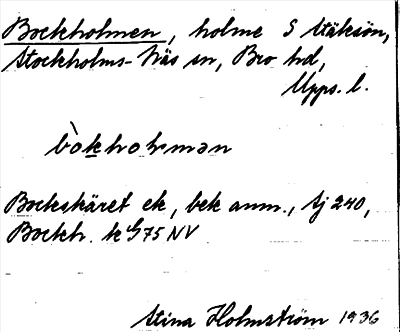 Bockholmen, holme S Stäksön,
Stockholms-Näs sn, Bro hd,
Upps. l.
bòkhohmən
Bockskäret ek, bek anm., tj 240,
Bockh. k 75 NV
Stina Holmström 1936